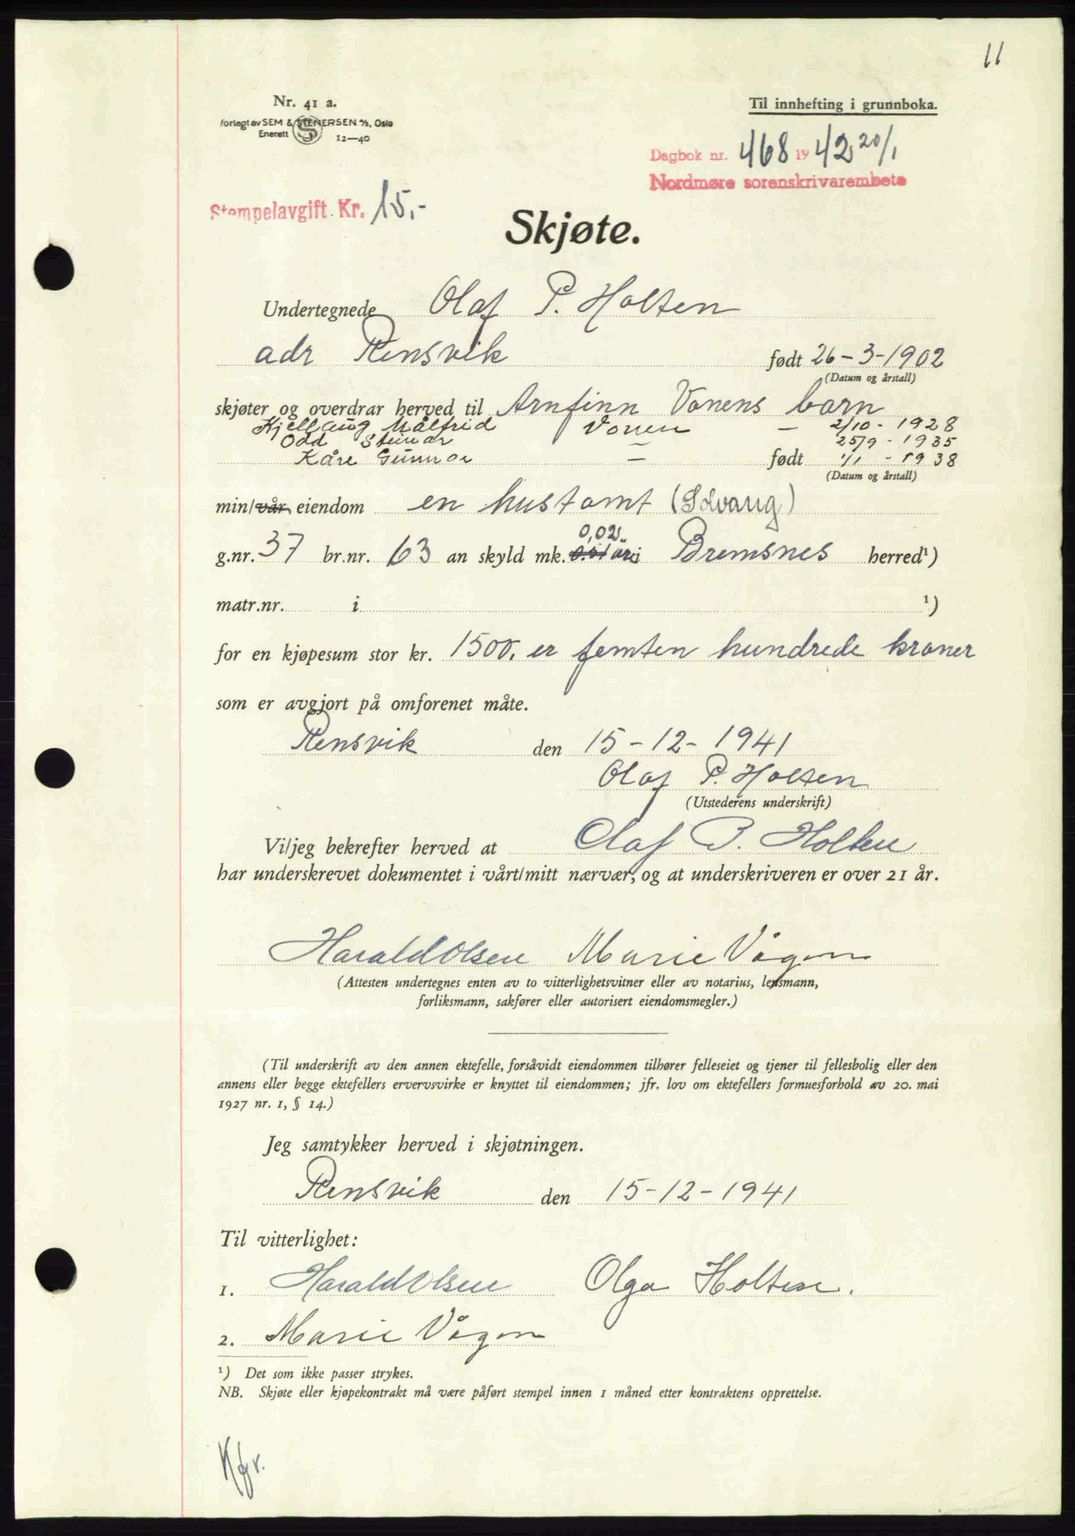 11
Nr. 41 a.
Til innhefting i grunnboka.
forlagt av SEM & STENERSEN A/S, Oslo
Enerett 12—40
Dagbok nr. 468 1942 20/1
Nordmøre sorenskrivarembete
Stempelavgift Kr. 15,-
Skjøte.
Undertegnede Olaf P. Holten
adr Rensvik født 26-3-1902
(Datum og årstall)
skjøter og overdrar herved til Arnfinn Vonens barn
Kjellaug Målfrid Vonen - 2/10 - 1928
Odd Steinar 25/9 - 1935
Kåre Gunnar - født 1/1 - 1938
(Datum og årstall)
min/vår eiendom en hustomt (Solvang)
0,02
g.nr. 37 br.nr. 63 an skyld mk. i Bremsnes herred¹)
matr.nr. i ¹)
for en kjøpesum stor kr. 1500, er femten hundrede kroner
som er avgjort på omforenet måte.
Rensvik den 15-12-1941
Olaf P. Holten
(Utstederens underskrift)
Vi/jeg bekrefter herved at Olaf P. Holten
har underskrevet dokumentet i vårt/mitt nærvær, og at underskriveren er over 21 år.
Harald Olsen Marie Vågen
(Attesten undertegnes enten av to vitterlighetsvitner eller av notarius, lensmann,
forliksmann, sakfører eller autorisert eiendomsmegler.)
(Til underskrift av den annen ektefelle, forsåvidt eiendommen tilhører felleseiet og tjener til fellesbolig eller den
annens eller begge ektefellers ervervsvirke er knyttet til eiendommen; jfr. lov om ektefellers formuesforhold av 20. mai
1927 nr. 1, § 14.)
Jeg samtykker herved i skjøtningen.
Rensvik den 15-12-1941
Til vitterlighet:
1. Harald Olsen Olga Holten.
2. Marie Vågen
¹) Det som ikke passer strykes.
NB. Skjøte eller kjøpekontrakt må være påført stempel innen 1 måned etter kontraktens opprettelse.
Kfr.